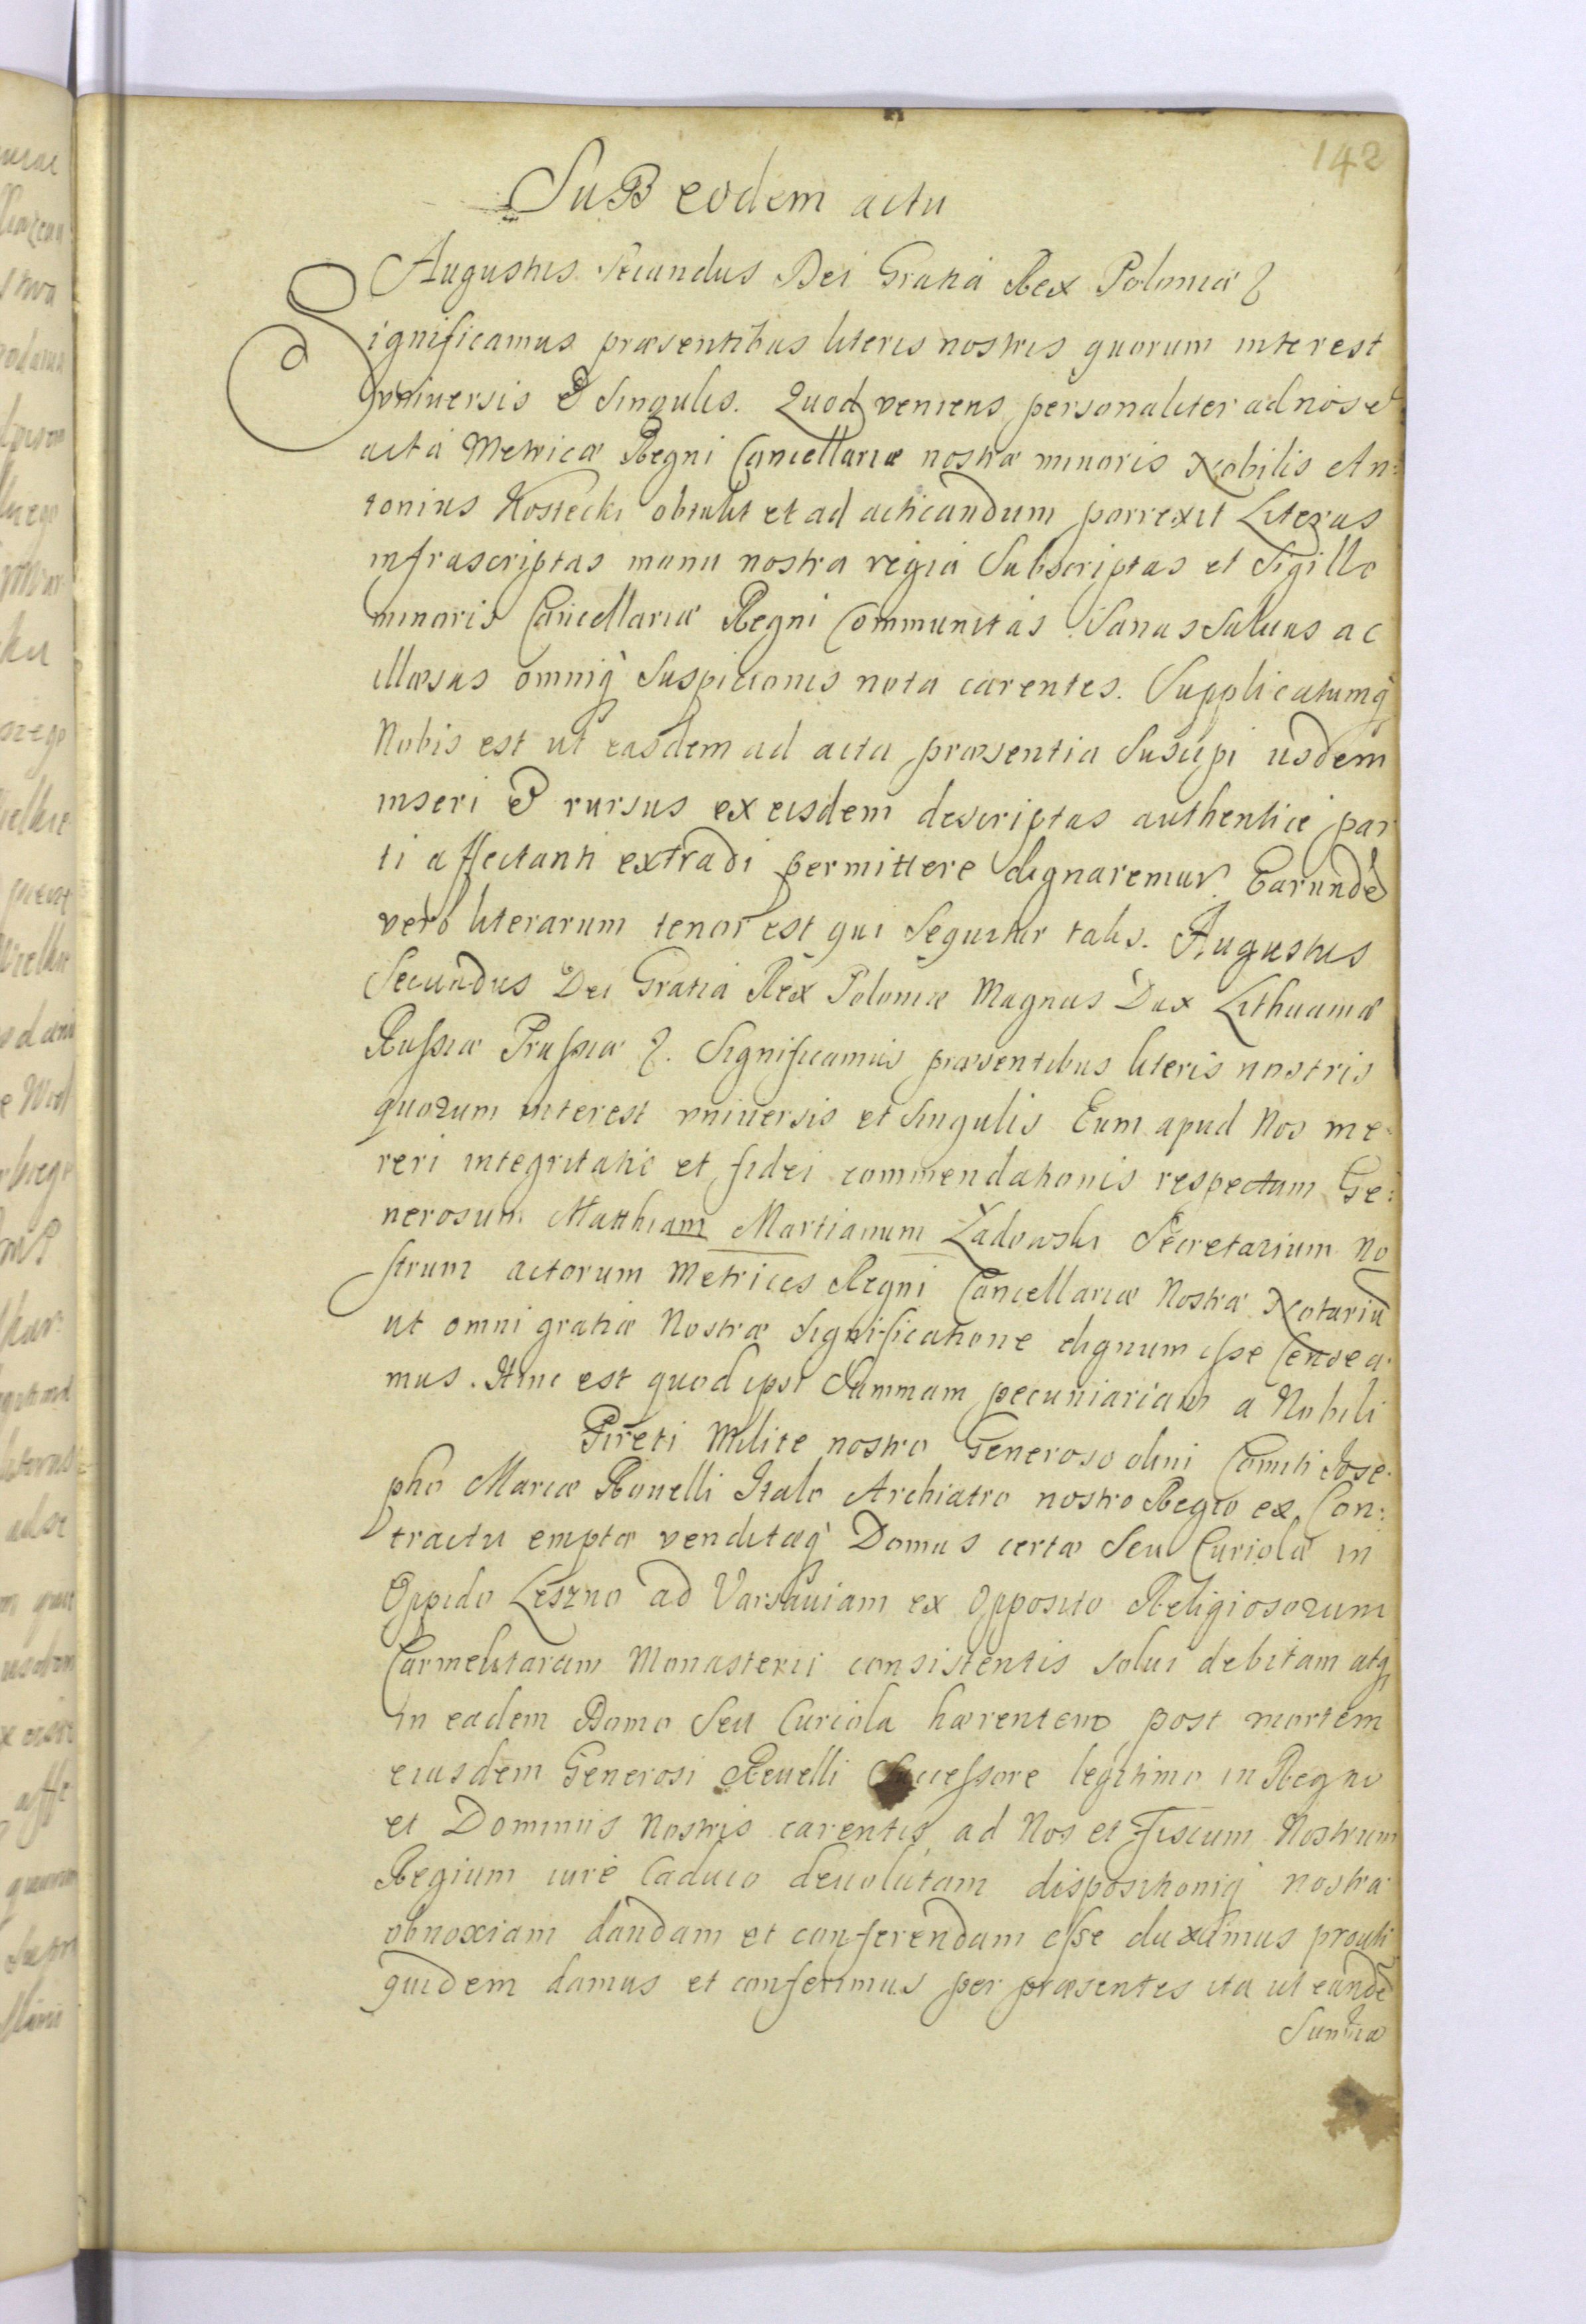 142
SuB eodem actu
Augustus Secundus Dei Gratia Rex Poloniæ &
Significamus præsentibus literis nostris quorum interest
vniuersis & Singulis. Quod veniens personaliter ad nos et
acta Metricæ Regni Cancellariæ nostræ minoris Nobilis An:
tonius Kostecki obtulit et ad acticandum porrexit Literas
infrascriptas manu nostra regia Subscriptas et Sigillo
minoris Cancellariæ Regni Communitas Sanas Saluas ac
illæsas omniq̀ Suspicionis nota carentes. Supplicatumq̀
Nobis est ut easdem ad acta præsentia Suscipi iisdem
inseri & rursus ex eisdem descriptas authentice par
ti affectanti extradi permittere dignaremur. Earundē
verò literarum tenor est qui Sequitur talis. Augustus
Secundus Dei Gratia Rex Poloniæ Magnus Dux Lithuaniæ
Russiæ Prussiæ &. Significamus præsentibus literis nostris
quorum interest vniuersis et Singulis Eum apud Nos me-
reri integritatis et fidei commendationis respectum Ge:
nerosum Matthiam Martianum Ładowski Secretarium No
strum actorum Metrices Regni Cancellariæ Nostræ Notariū
ut omni gratiæ Nostræ Significatione dignum esse Censea-
mus. Hinc est quod ipsi Summam pecuniariam a Nobili
Pireti Milite nostro Generoso olim Comiti Jose-
pho Mariæ Rouelli Italo Archiatro nostro Regio ex Con:
tractu emptæ venditæq̀ Domus certæ Seu Curiolæ in
Oppido Leszno ad Varsauiam ex Opposito Religiosorum
Carmelitarum Monasterii consistentis solui debitam atq̀
in eadem Domo Seu Curiola hærentem post mortem
eiusdem Generosi Reuelli Successore legitimo in Regno
et Dominiis Nostris carentis ad Nos et Fiscum Nostrum
Regium iure Caduco deuolutam dispositioniq̀ nostræ
obnoxiam dandam et conferendam esse duximus prouti
quidem damus et conferimus per præsentes ita ut eandē